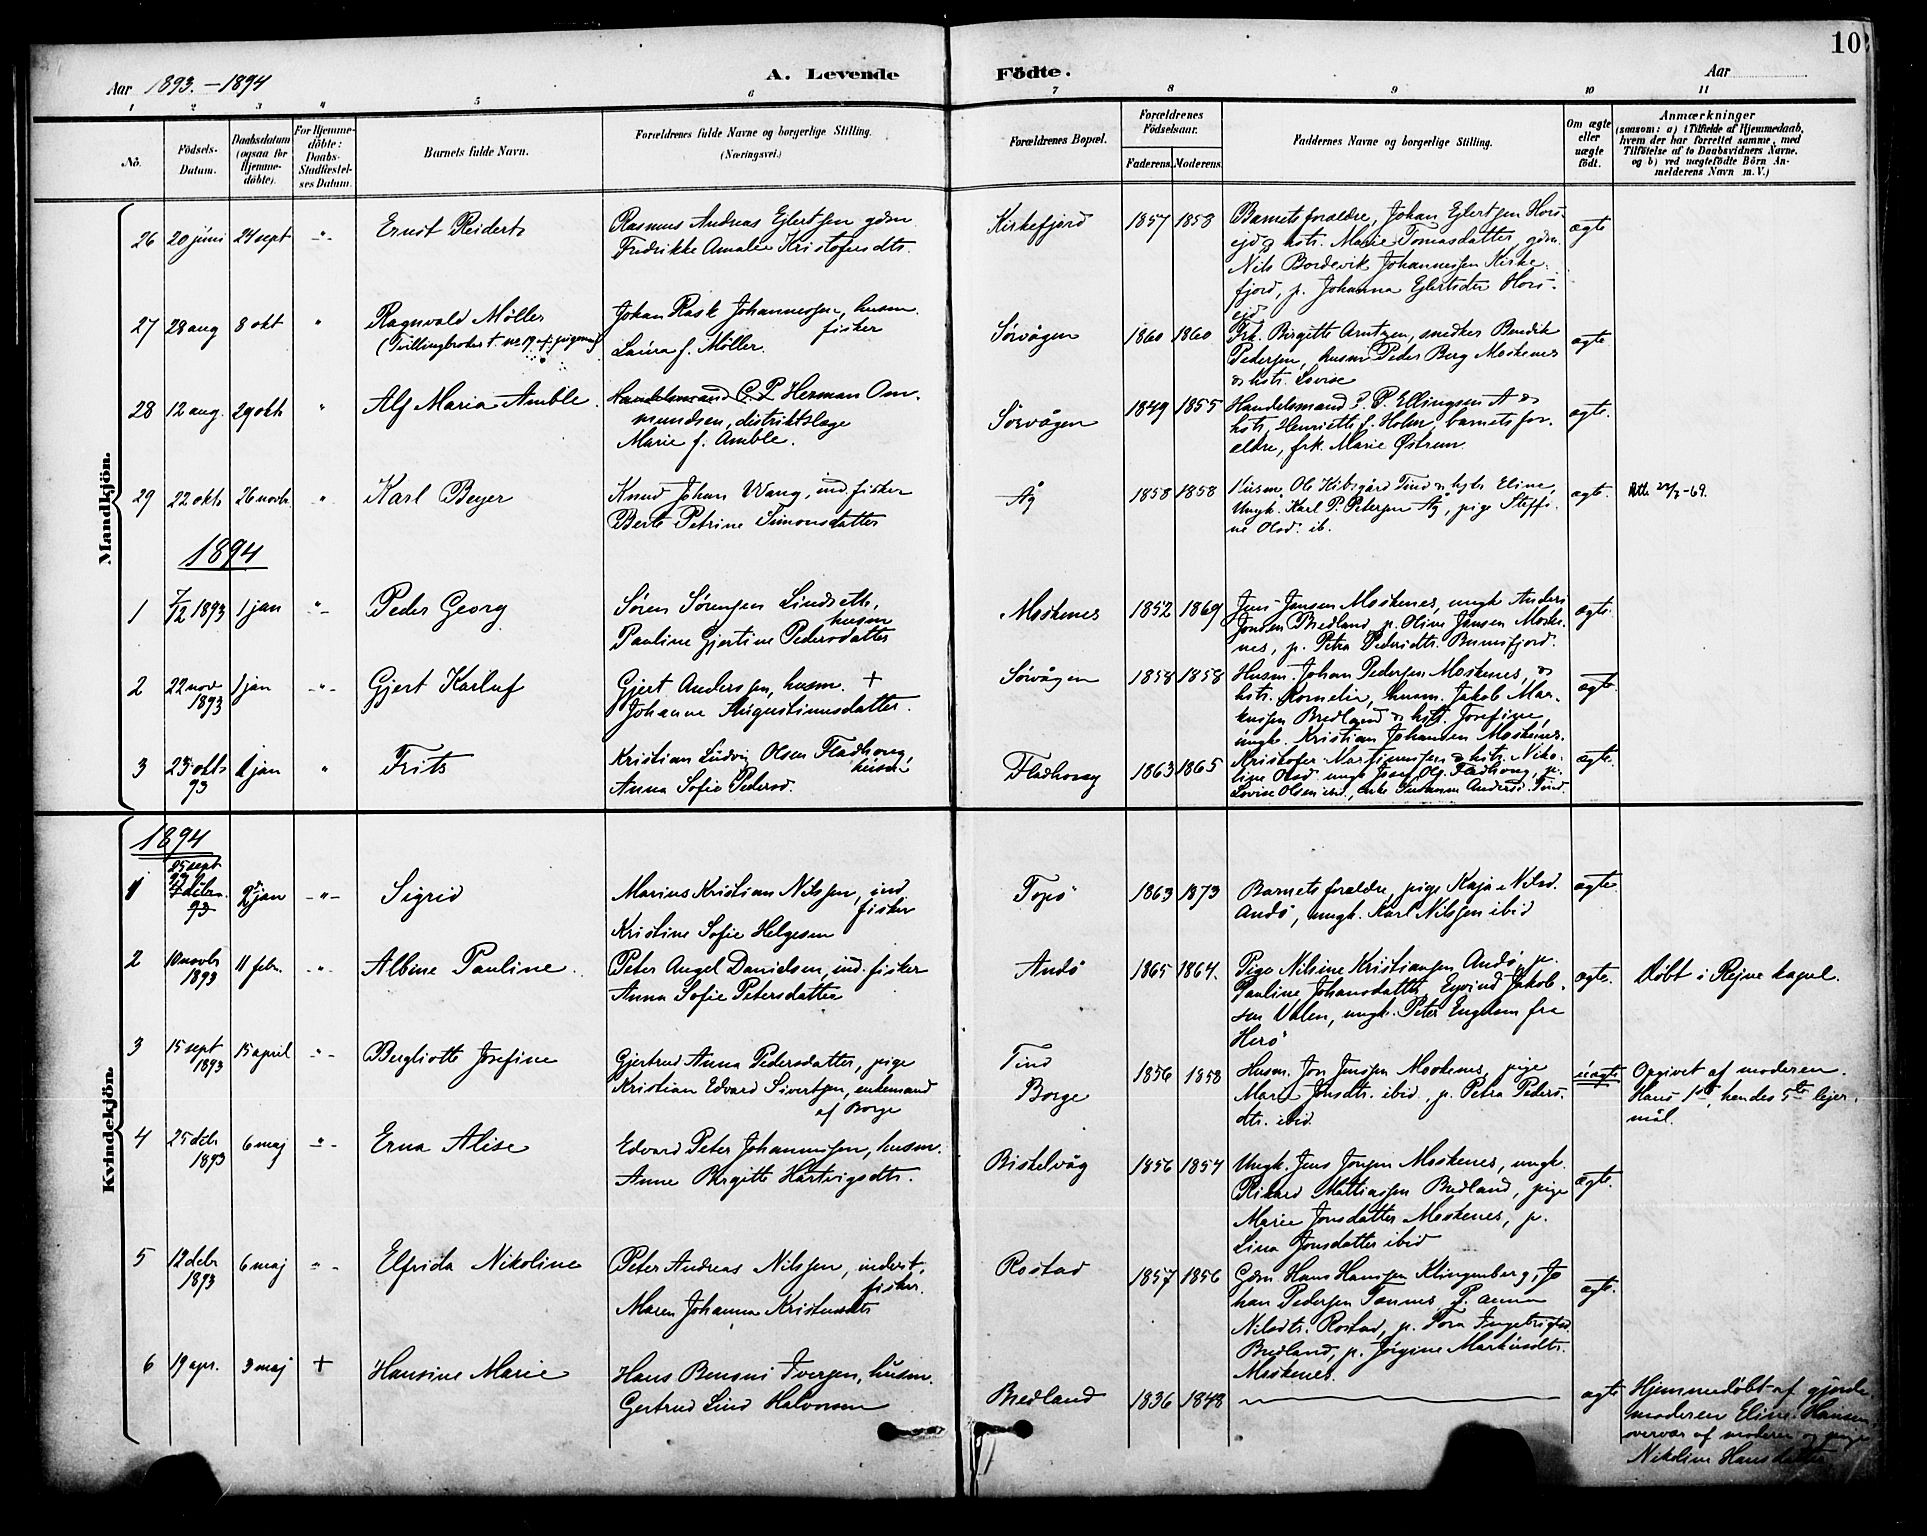 10
Aar 1893.-1894
A. Levende Födte.
Aar
1 2 3 4 5 6 7 8 9 10 11
No.
Födsels-Datum.
Daabsdatum (ogsaa for Hjemme-döbte).
For Hjemme-döbte: Daabs-Stadfæstel-ses Datum.
Barnets fulde Navn.
Forældrenes fulde Navne og borgerlige Stilling. (Næringsvei.)
Forældrenes Bopæl.
Forældrenes Födselsaar.
Faderens. Moderens.
Faddernes Navne og borgerlige Stilling.
Om ægte eller uægte födt.
Anmærkninger (saasom: a) i Tilfælde af Hjemmedaab, hvem der har forrettet samme, med Tilföielse af to Daabsvidners Navne, og b) ved uægtefödte Börn Anmelderens Navn m. V.)
Mandkjön.
26 20 juni 24 sept -"- Ernst Reidert Rasmus Andreas Eilertsen gdm
Fredrikke Amalie Kristofersdtr. Kirkefjord 1857 1858
Barnets forældre, Johan Eilertsen Hors-
ejd og hstr. Marie Tomasdatter, gdm.
Nils Bordevik Johannessen Kirke-
fjord, p. Johanna Eilertsdtr Hors-
ejd ægte
27 28 aug 8 okt " Ragnvald Möller
(Tvillingbroder t. no 19 af pigerne)
Johan Rask Johannessen, husm.
fisker
Laura f. Möller. Sørvågen 1860 1860
Frk. Birgitte Arntzen, snedker Bendik
Pedersen, husm Peder Berg Moskenes
& hstr. Lovise ægte
28 12 aug. 29 okt " Alf Maria Amble. Handelsmand C. P. Herman Om-
mundsen, distriktslæge
Marie f. Amble. Sørvågen 1849 1855
Handelsmand P. Ellingsen Å &
hstr. Henriette f. Holm, barnets for-
ældre, frk. Marie Østrem ægte.
29 22 okt 26 novbr " Karl Beyer Knud Johan Wang, ind fisker
Berte Petrine Simonsdatter Åg 1858 1858
Husm. Ole Hibsgård Tind & hstr Eline,
Ungk. Karl P. Petersen Åg, pige Steffi-
ne Olsd. ib. ægte. Att. 22/2-69.
1894
1 7/12 1893 1 jan -"- Peder Georg Søren Sørensen Lindseth,
husm
Pauline Gjertine Pedersdatter Moskenes 1852 1869
Jens Jansen Moskenes, ungk Anders
Jonsen Bredland p. Oline Jensen Moske-
nes, p. Petra Pedersdtr. Bunesfjord. ægte.
2 22 nov 1893 1 jan -"- Gjert Karluf Gjert Anderssen, husm. +
Johanne Augustinusdatter. Sørvågen 1858 1858
Husm. Johan Pedersen Moskenes, &
hstr. Kornelia, husm. Jakob Mar-
kussen Bredland & hstr. Josefine,
ungk. Kristian Johansen Moskenes. ægte
3 23 okt 93 1 jan " Frits Kristian Ludvig Olsen Fladhoug
husm.
Anna Sofie Pedersd. Fladhoug 1863 1865
Kristofer Martinussen & hstr. Niko-
line Olsd. ungk Josef Ols. Fladhoug, pi.
Lovise Olsen ibid., enke Susanna Andersd. Tind. ægte.
Kvindekjön.
1894
1 25 sept 93 2 jan -"- Sigrid Marius Kristian Nilssen, ind
fisker
Kristine Sofie Helgesen Topö 1863 1873
Barnets forældre, pige Kaja Nilsd.
Andö, ungk. Karl Nilssen ibid ægte
2 10 novbr 1893 11 febr. -"- Albine Pauline. Peter Angel Danielsen, ind. fisker
Anna Sofie Petersdatter Andö 1865 1864.
Pige Nilsine Kristiansen Andö, p.
Pauline Johansdatter, Eyvind Jakob-
sen Valen, ungk. Peter Engdum fra
Herö ægte. Döbt i Rejne kapel.
3 15 sept 1893 15 april -"- Bergliotte Josefine Gjertrud Anna Pedersdatter, pige
Kristian Edvard Sivertsen, enkemand
af Borge Tind
Borge 1856 1858
Husm. Jon Jenssen Moskenes, pige
Marie Jonsdtr. ibid, p. Petra Peders-
dtr. ibid. uægte Opgivet af moderen.
Hans 1ste, hendes 5te lejer-
mål.
4 25 debr 1893 6 maj -"- Erna Alise Edvard Peter Johannessen, husm.
Anne Birgitte Hartvigsdtr. Biskelvåg 1856 1854
Ungk. Jens Jonsen Moskenes, ungk.
Rikard Mattiassen Bredland, pige
Marie Jonsdatter Moskenes, p.
Lina Jonsdatter ibid ægte.
5 12 debr 1893 6 maj -"- Elfrida Nikoline Peter Andreas Nilssen, inderst,
fisker.
Maren Johanna Kristensdtr Rostad 1857 1856
Gdm Hans Hanssen Klingenberg, Jo
han Pedersen Tonnes, p. Anna
Nilsdtr. Rostad, p. Tora Ingebrigtsd
Bredland, p. Jørgine Markusdtr.
Moskenes. ægte.
6 19 apr. 3 maj + Hansine Marie Hans Benoni Iversen, husm.
Gertrud Lind Halvorsen Bredland 1836 1848
ægte Hjemmedöbt af gjorde-
moderen Eline Hansen,
overvær af moderen og pige
Nikoline Hansdatter